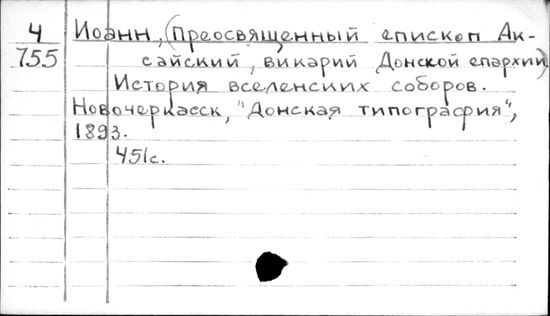 4 Иоанн, (Преосвященный епископ Ак-
755 сайский, викарий Донской епархии)
История вселенских соборов.
Новочеркасск, "Донская типография",
1893.
451с.